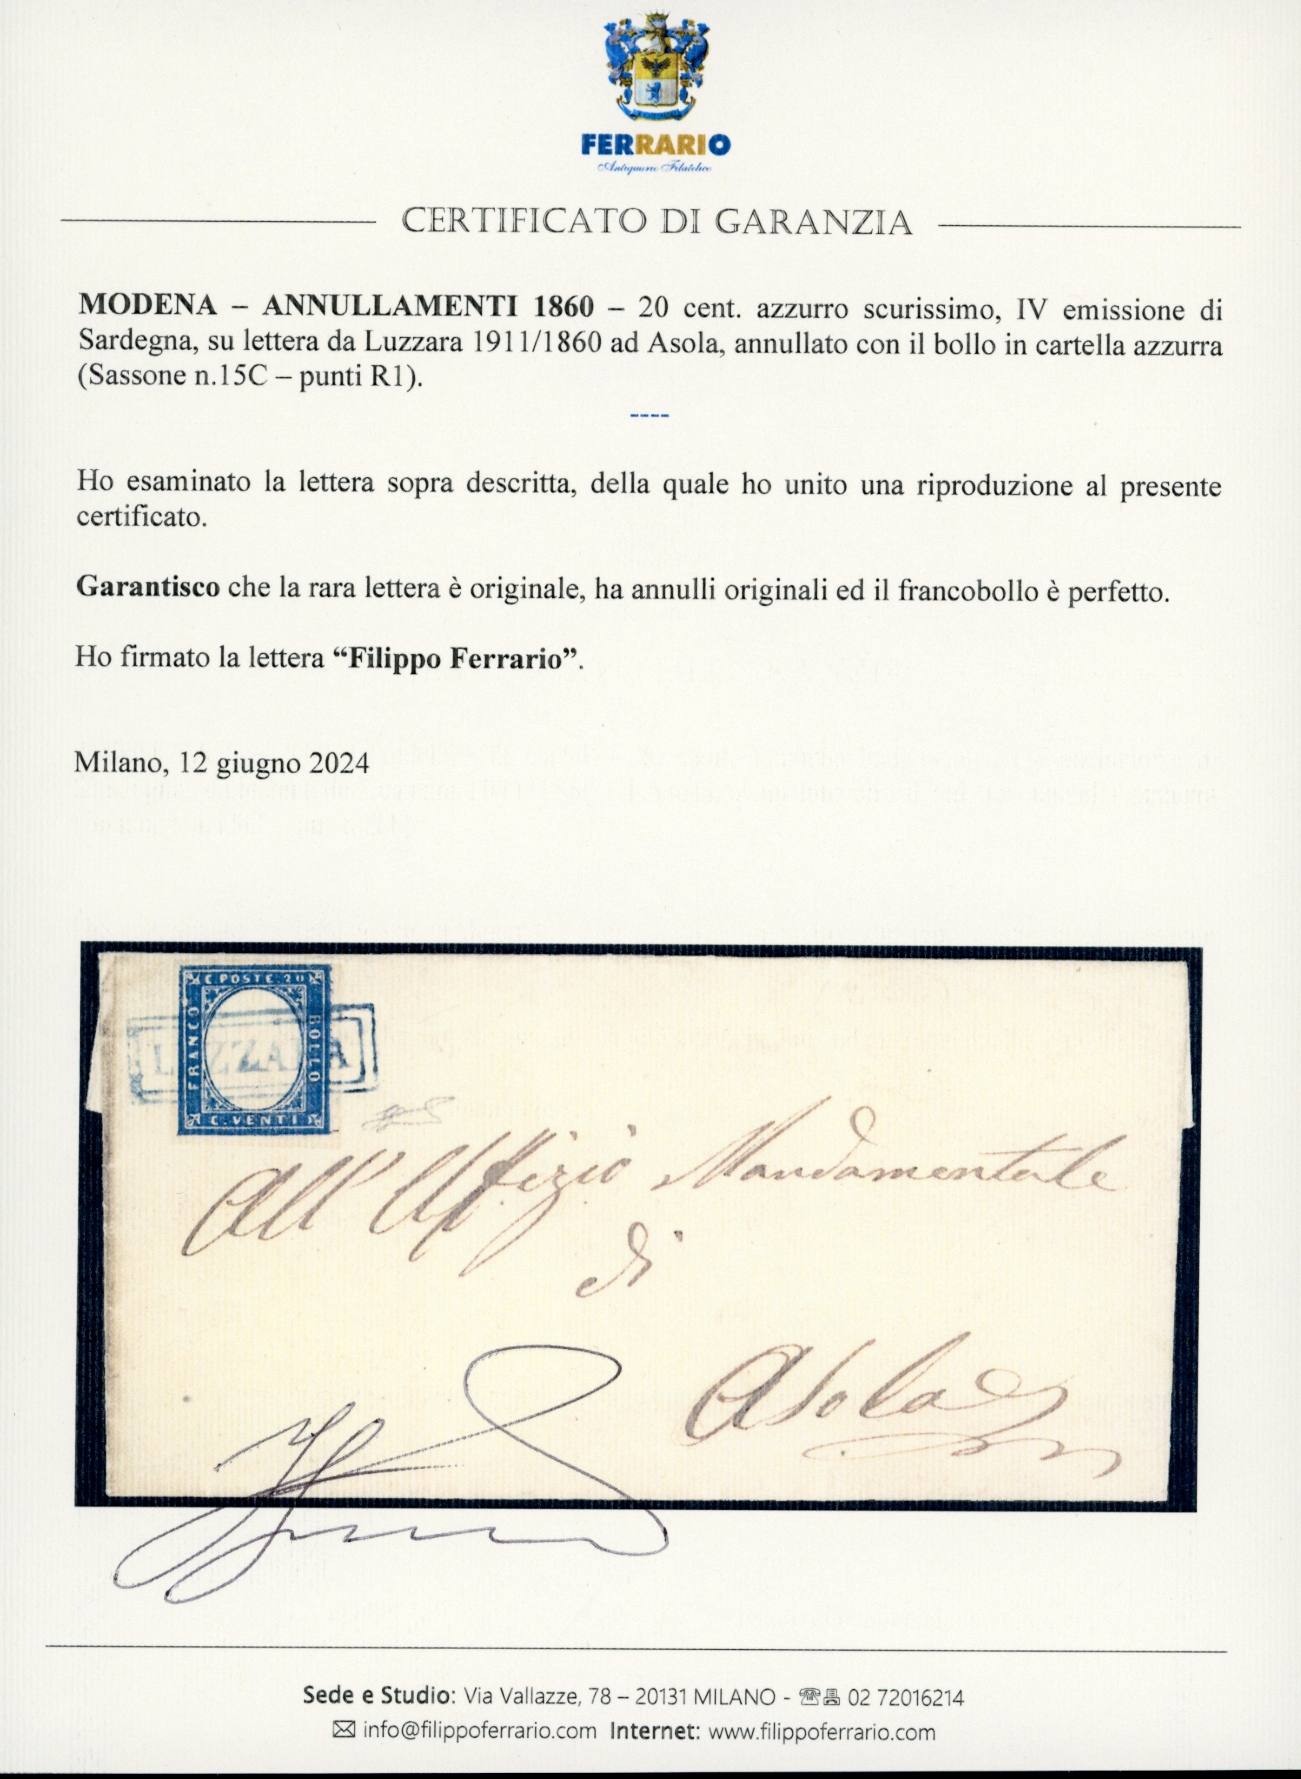 FERRARIO
Antiquario Filatelico
CERTIFICATO DI GARANZIA
MODENA – ANNULLAMENTI 1860 – 20 cent. azzurro scurissimo, IV emissione di
Sardegna, su lettera da Luzzara 1911/1860 ad Asola, annullato con il bollo in cartella azzurra
(Sassone n.15C – punti R1).
----
Ho esaminato la lettera sopra descritta, della quale ho unito una riproduzione al presente
certificato.
Garantisco che la rara lettera è originale, ha annulli originali ed il francobollo è perfetto.
Ho firmato la lettera “Filippo Ferrario”.
Milano, 12 giugno 2024
C POSTE 20
FRANCO
BOLLO
C. VENTI
LUZZARA
All' Uffizio Mandamentale
di
Asola
Sede e Studio: Via Vallazze, 78 – 20131 MILANO - ☎🖷 02 72016214
✉ info@filippoferrario.com Internet: www.filippoferrario.com